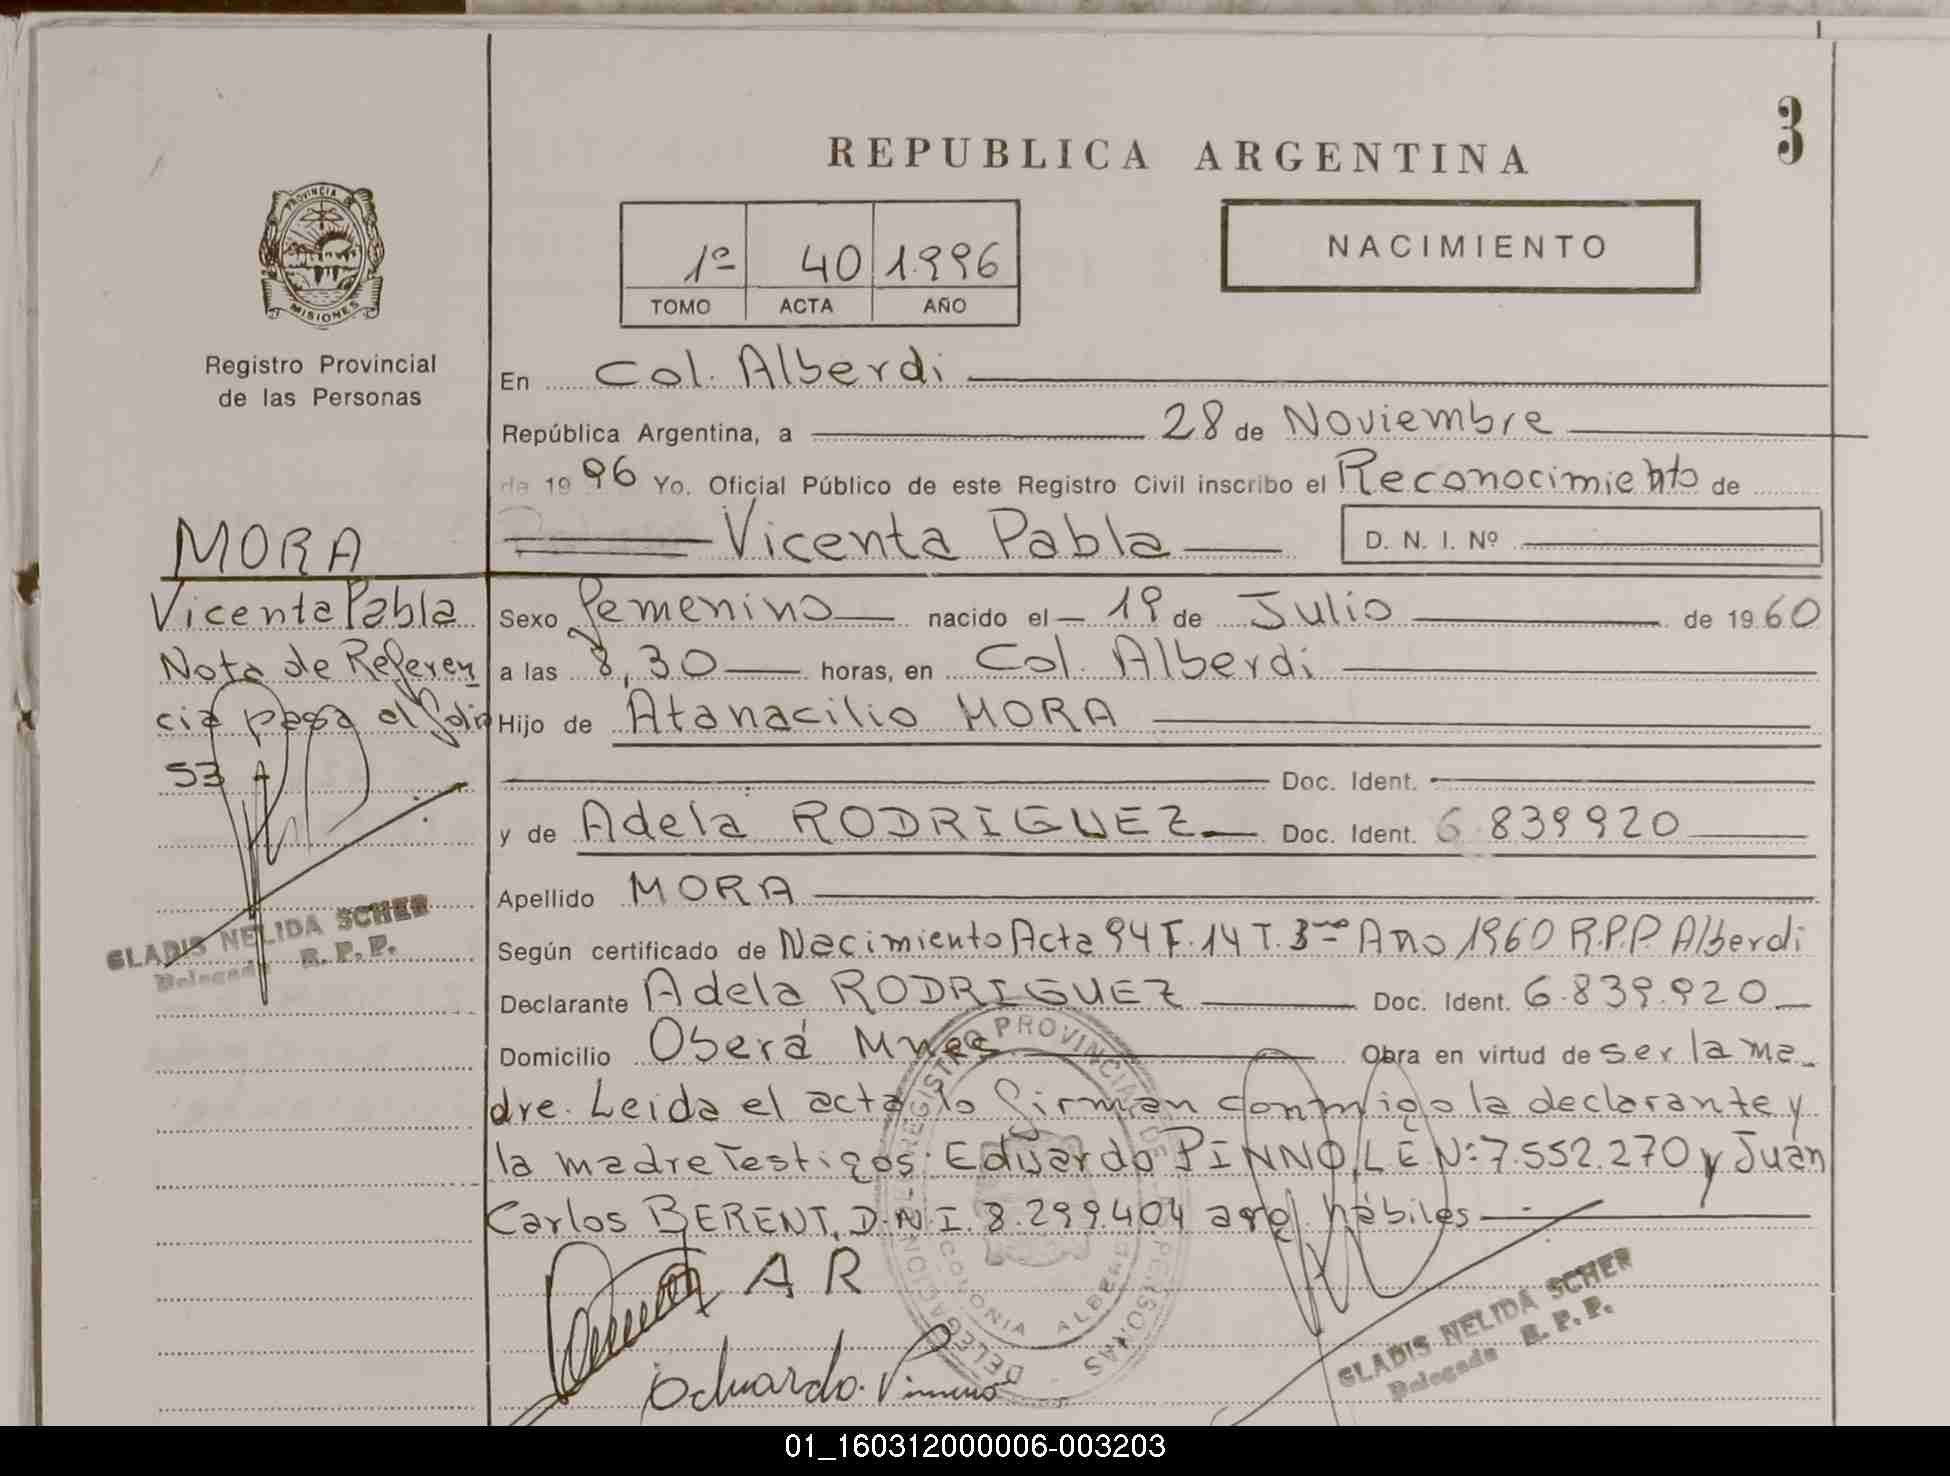 3
REPUBLICA ARGENTINA
NACIMIENTO
PROVINCIA DE
MISIONES
Registro Provincial
de las Personas
1º 40 1.996
TOMO ACTA AÑO
En Col. Alberdi
República Argentina, a 28 de Noviembre
de 19 96 Yo. Oficial Público de este Registro Civil inscribo el Reconocimiento de
Vicenta Pabla D. N. I. Nº
MORA
Vicenta Pabla
Nota de Referen
cia pasa al folio
53
GLADIS NELIDA SCHER
Delegada R. P. P.
Sexo femenino nacido el 19 de Julio de 19 60
a las 8,30 horas, en Col. Alberdi
Hijo de Atanacilio MORA
Doc. Ident.
y de Adela RODRIGUEZ Doc. Ident. 6.839920
Apellido MORA
Según certificado de Nacimiento Acta 94 F. 14 T. 3ro Año 1960 R.P.P. Alberdi
Declarante Adela RODRIGUEZ Doc. Ident. 6.839.920
Domicilio Oberá Mnes Obra en virtud de ser la ma
dre. Leida el acta lo firman conmigo la declarante y
la madre Testigos: Eduardo PINNO L.E N: 7.552.270 y Juan
Carlos BERENT, D.N.I. 8.299.404 arg. hábiles
REGISTRO PROVINCIAL DE LAS PERSONAS
DELEGACION
COLONIA ALBERDI
A R
Eduardo Pinno
GLADIS NELIDA SCHER
Delegada R. P. P.
01_160312000006-003203